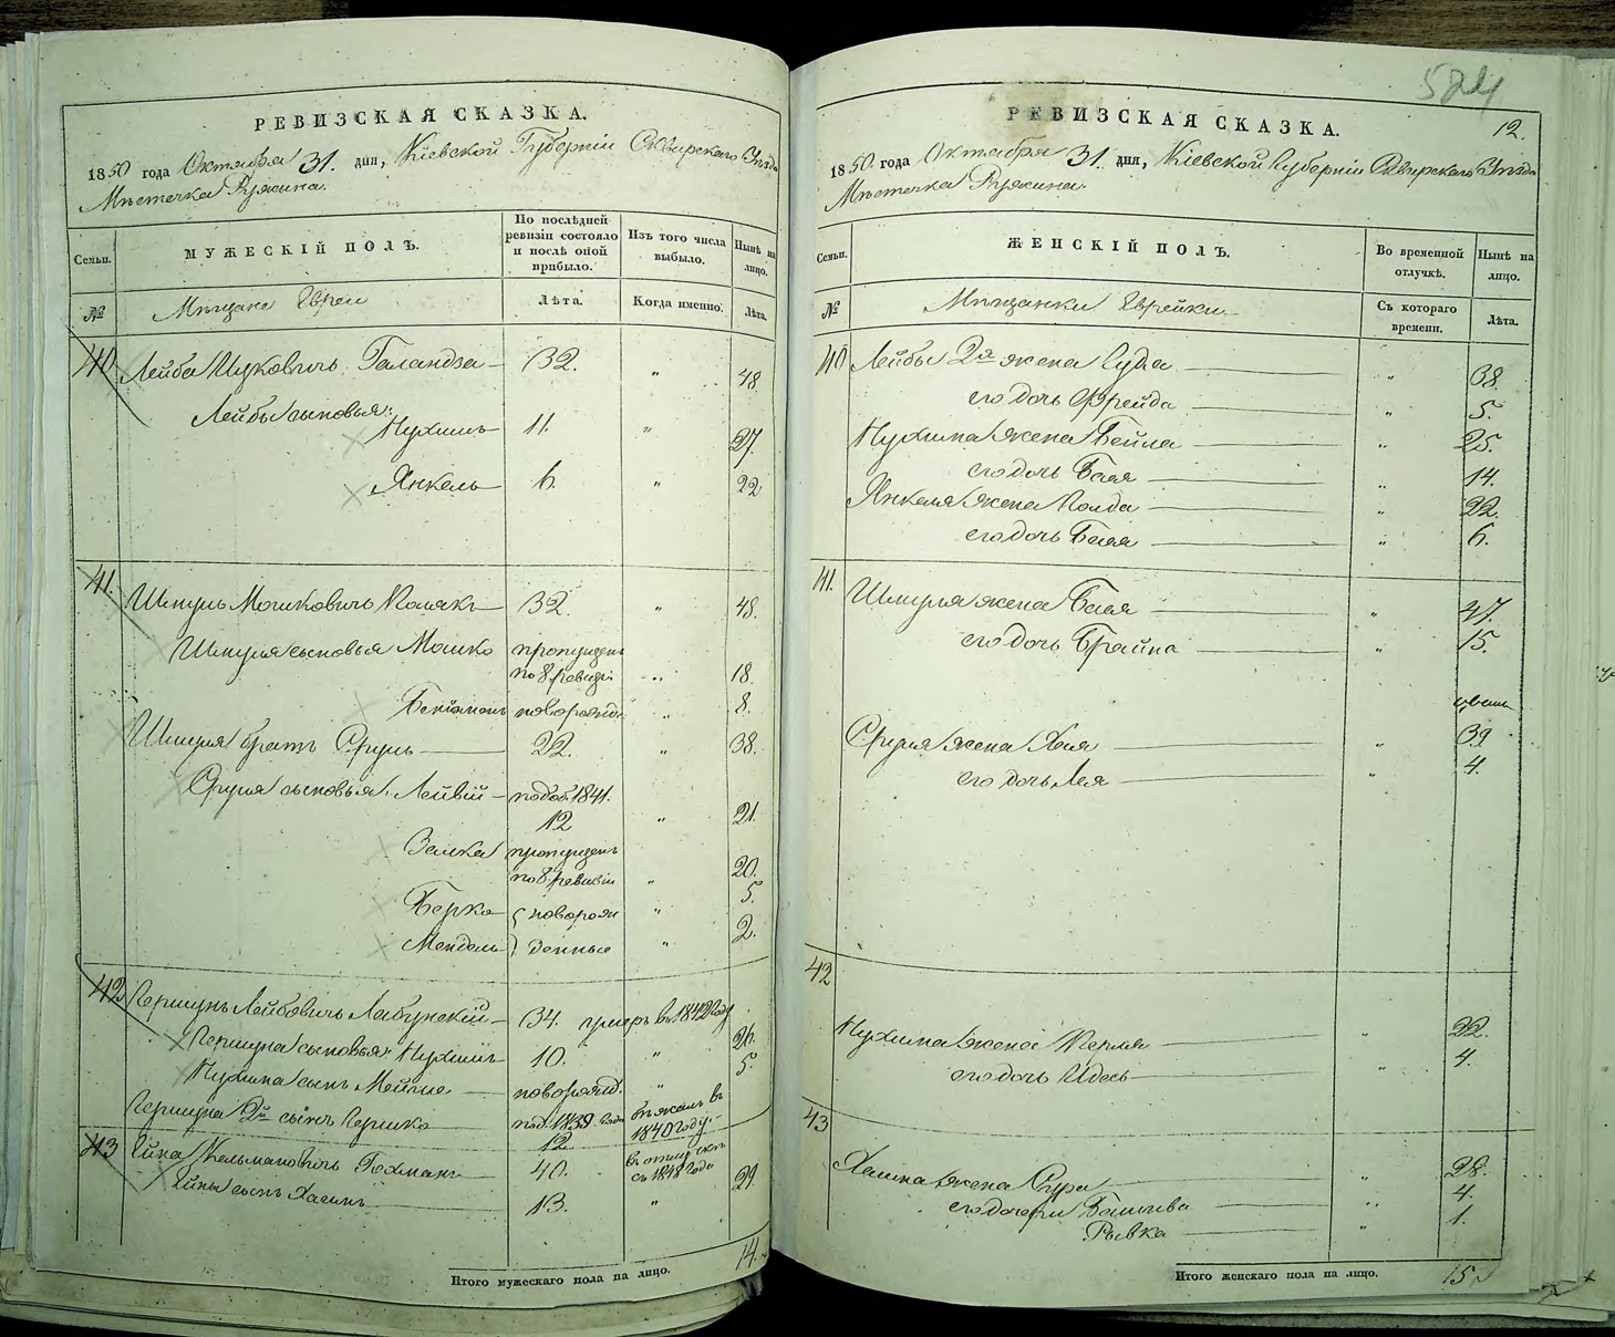 РЕВИЗСКАЯ СКАЗКА.
1850 года Октября 31. дня, Кіевской Губерніи Сквирскаго Уѣзда
Мѣстечка Ружина.
Семьи.
МУЖЕСКІЙ ПОЛЪ.
По послѣдней ревизіи состояло и послѣ оной прибыло.
Изъ того числа выбыло.
Нынѣ на лицо.
№
Мѣщане Евреи
Лѣта.
Когда именно.
Лѣта.
40 Лейба Ицковичъ Галандза 32. " 48.
Лейбы сыновья:
Нухимъ 11. " 27.
Янкель 6. " 22
41. Шмуль Мошковичъ Полякъ 32. " 48.
Шмуля сыновья Мошко пропущенъ
по 8 ревизіи " 18.
Беніоминъ новорожд. " 8.
Шмуля братъ Сруль 22. " 38.
Сруля сыновья: Лейвій по доб. 1841.
12 " 21.
Залка пропущенъ
по 8 ревизіи " 20.
Берко новорож " 5.
Мендель денные " 2.
42 Гершунъ Лейбовичъ Лабунскій 34. умеръ въ 1842 году
Гершуна сыновья: Нухимъ 10. " 26.
Нухима сынъ Мейлие новорожд. " 5.
Гершуна 2й сынъ Гершко по д. 1839 года бѣжалъ въ
12 1840 году.
43 Ейна Кельмановичъ Гохманъ 40. въ отлучкѣ
съ 1848 года
Ейны сынъ Хаимъ 13. " 29.
Итого мужескаго пола на лицо. 14.
524
12.
РЕВИЗСКАЯ СКАЗКА.
1850. года Октября 31. дня, Кіевской Губерніи Сквирскаго Уѣзда
Мѣстечка Ружина.
Семьи.
ЖЕНСКІЙ ПОЛЪ.
Во временной отлучкѣ.
Нынѣ на лицо.
№
Мѣщанки Еврейки.
Съ котораго времени.
Лѣта.
40 Лейбы 2я жена Сура " 38.
его дочь Фрейда " 5.
Нухима жена Бейла " 25.
его дочь Бася " 14.
Янкеля жена Голда " 22.
его дочь Бася " 6.
41. Шмуля жена Бася " 47.
его дочь Брайна " 15.
Сруля жена Хая " 39
его дочь Лея " 4.
42
Нухима жена Перля " 22.
его дочь Идесь " 4.
43
Хаима жена Сура " 28.
его дочери Башива " 4.
Рывка " 1.
Итого женскаго пола на лицо. 15